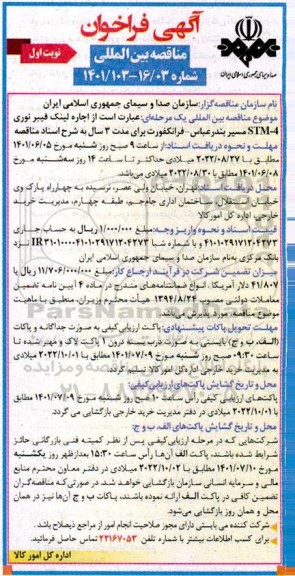 آگهی فراخوان
مناقصه بین المللی
شماره ۱۶/۰۳-۱۴۰۱/۱۰۳
نوبت اول
صدا و سیمای جمهوری اسلامی ایران
نام سازمان مناقصه‌گزار: سازمان صدا و سیمای جمهوری اسلامی ایران
موضوع مناقصه بین المللی یک مرحله‌ای: عبارت است از اجاره لینک فیبر نوری
STM-4 مسیر بندرعباس- فرانکفورت برای مدت ۳ سال به شرح اسناد مناقصه
مهلت و نحوه دریافت اسناد: از ساعت ۹ صبح روز شنبه مورخ ۱۴۰۱/۰۶/۰۵
مطابق با ۲۰۲۲/۰۸/۲۷ میلادی حداکثر تا ساعت ۱۴ روز سه‌شنبه مورخ
۱۴۰۱/۰۶/۰۸ مطابق با ۲۰۲۲/۰۸/۳۰ میلادی می‌باشد.
محل دریافت اسناد: تهران، خیابان ولی عصر، نرسیده به چهارراه پارک وی
خیابان استقلال، ساختمان اداری جام‌جم، طبقه چهارم، مدیریت خرید
خارجی، اداره کل امور کالا
قیمت اسناد و نحوه واریز وجه: مبلغ ۱/۰۰۰/۰۰۰ ریال به حساب جاری
۴۱۰۱۰۲۹۱۷۱۲۰۴۲۷۳ و با شماره شبا IR۳۱۰۱۰۰۰۰۴۱۰۱۰۲۹۱۷۱۲۰۴۲۷۳ نزد
بانک مرکزی به‌نام سازمان صدا و سیمای جمهوری اسلامی ایران
میزان تضمین شرکت در فرآیند ارجاع کار: مبلغ ۱۱/۷۰۶/۰۰۰/۰۰۰ ریال یا
۴۱/۸۰۷ دلار آمریکا. انواع ضمانتنامه‌های مندرج در ماده ۴ آیین نامه تضمین
معاملات دولتی مصوب ۱۳۹۴/۸/۲۴ هیأت محترم وزیران، منطبق با ماهیت
موضوع مناقصه، مورد پذیرش می‌باشد.
مهلت تحویل پاکات پیشنهادی: پاکت ارزیابی کیفی به صورت جداگانه و پاکات
(الف، ب و ج)، بایستی به صورت دربسته درون ۱ پاکت لاک و مهر شده تا
ساعت ۰۹:۳۰ صبح روز شنبه مورخ ۱۴۰۱/۰۷/۰۹ مطابق با ۲۰۲۲/۱۰/۰۱ میلادی
به مدیریت خرید خارجی، اداره‌کل امور کالا تسلیم گردد.
محل و تاریخ گشایش پاکت‌های ارزیابی کیفی:
پاکت‌های ارزیابی کیفی رأس ساعت ۱۰ صبح روز شنبه مورخ ۱۴۰۱/۰۷/۰۹ مطابق
با ۲۰۲۲/۱۰/۰۱ میلادی در دفتر مدیریت خرید خارجی بازگشایی می گردد.
محل و تاریخ گشایش پاکت‌های الف، ب و ج:
شرکت‌هایی که در مرحله ارزیابی کیفی پس از نظر کمیته فنی بازرگانی حائز
شرایط شده باشند، پاکت الف آن‌ها رأس ساعت ۱۵:۳۰ بعدازظهر روز یکشنبه
مورخ ۱۴۰۱/۰۷/۱۰ مطابق با ۲۰۲۲/۱۰/۰۲ میلادی در دفتر معاون محترم منابع
مالی و سرمایه انسانی سازمان بازگشایی خواهد شد. در صورتی که مناقصه‌گران
تضمین کافی در پاکت الف ارائه نموده باشند، پاکات ب و ج آن‌ها نیز در همان
محل و همان روز بازگشایی می‌شود.
شرکت کننده می بایستی دارای مجوز صلاحیت انجام امور از مراجع ذیصلاح باشد.
برای کسب اطلاعات بیشتر با شماره تلفن ۲۲۱۶۷۰۵۳ تماس حاصل فرمائید.
اداره کل امور کالا